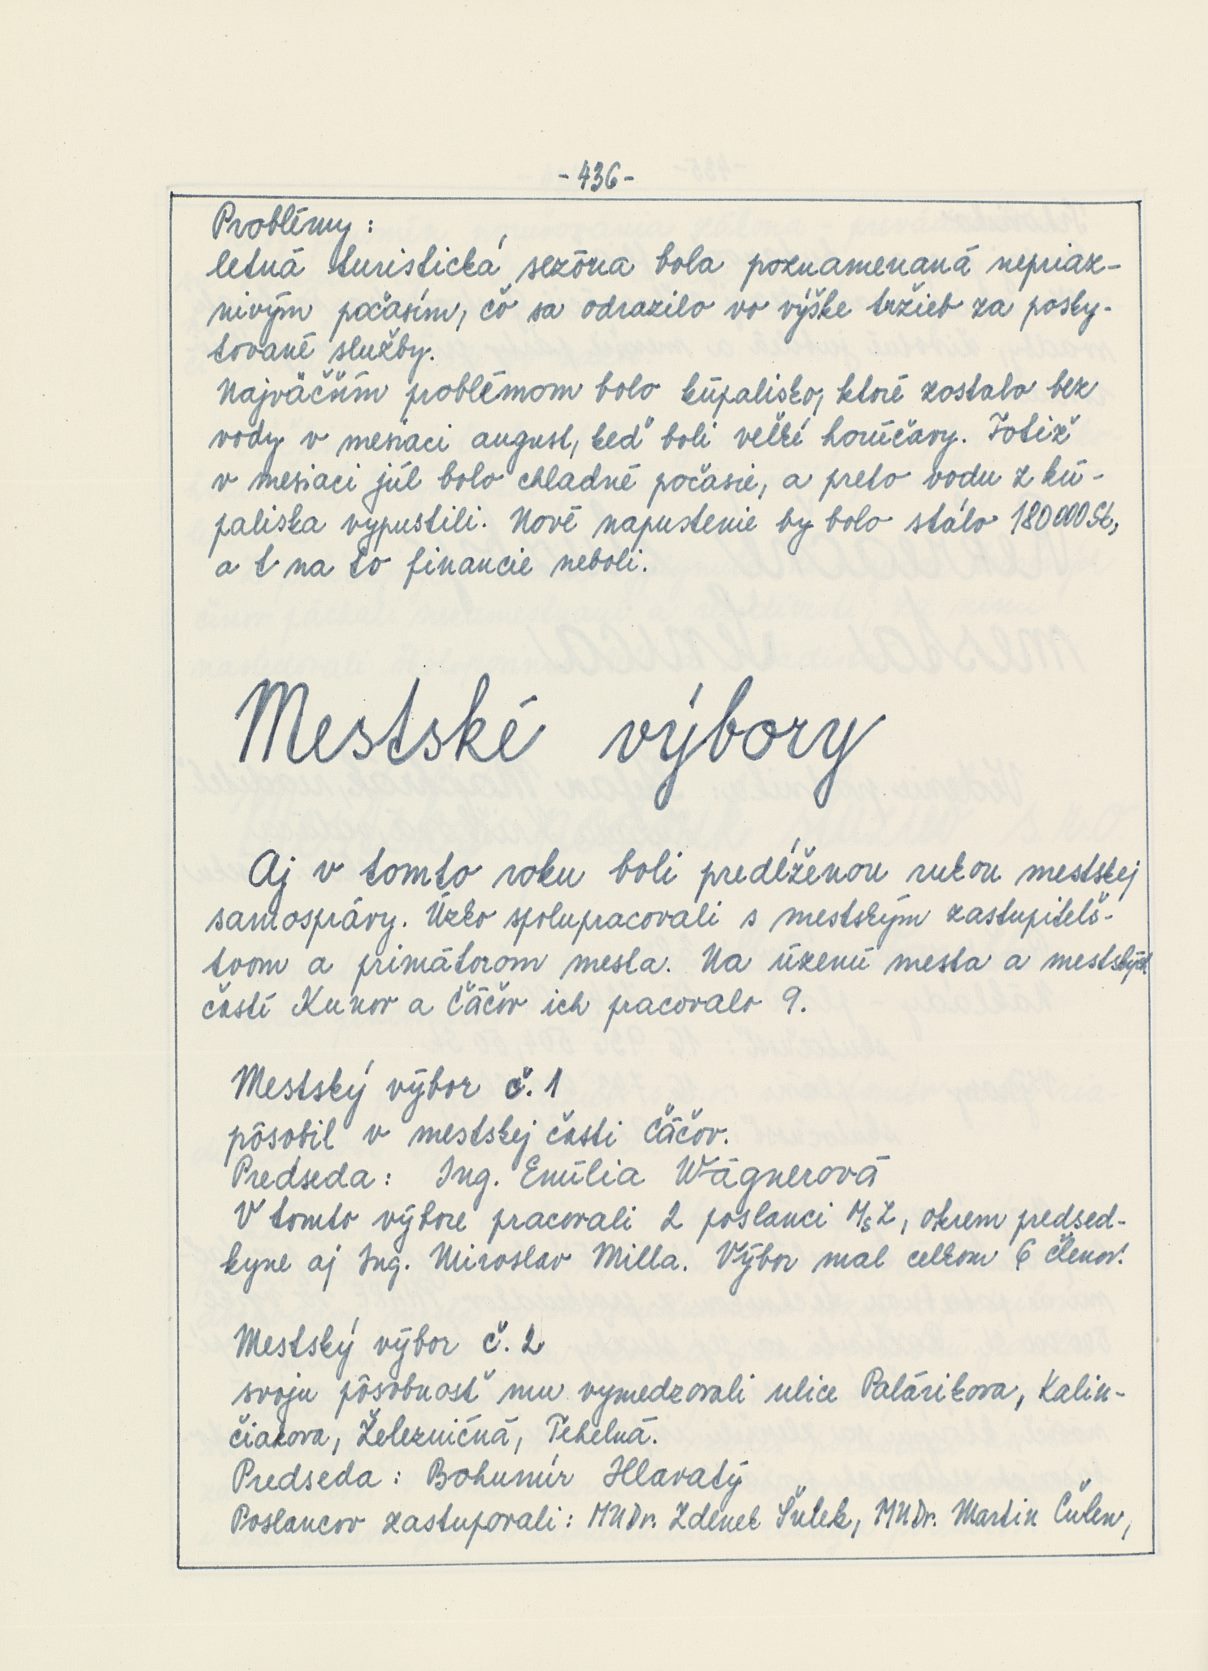 - 436 -
Problémy :
letná turistická sezóna bola poznamenaná nepriaz-
nivým počasím, čo sa odrazilo vo výške tržieb za posky-
tované služby.
Najväčším problémom bolo kúpalisko, ktoré zostalo bez
vody v mesiaci august, keď boli veľké horúčavy. Totiž
v mesiaci júl bolo chladné počasie, a preto vodu z kú-
paliska vypustili. Nové napustenie by bolo stálo 180 000 Sk,
a t na to financie neboli.
Mestské výbory
Aj v tomto roku boli predĺženou rukou mestskej
samosprávy. Úzko spolupracovali s mestským zastupiteľs-
tvom a primátorom mesta. Na území mesta a mestských
častí Kunov a Čáčov ich pracovalo 9.
Mestský výbor č. 1
pôsobil v mestskej časti Čáčov.
Predseda : Ing. Emília Wágnerová
V tomto výbore pracovali 2 poslanci MsZ, okrem predsed-
kyne aj Ing. Miroslav Milla. Výbor mal celkom 6 členov.
Mestský výbor č. 2
svoju pôsobnosť mu vymedzovali ulice Palárikova, Kalin-
čiakova, Železničná, Tehelná.
Predseda : Bohumír Hlavatý
Poslancov zastupovali : MUDr. Zdenek Šulek, MUDr. Martin Čulen,